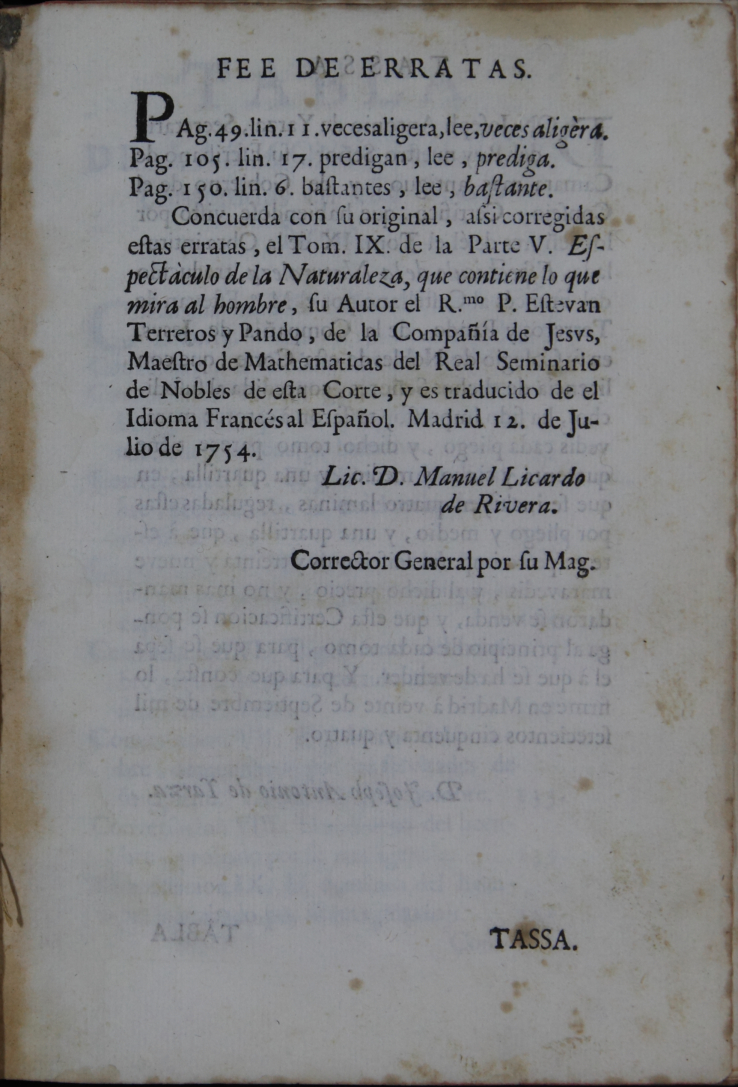 FEE DE ERRATAS.
PAg.49.lin.11.vecesaligera,lee,veces aligèra.
Pag. 105. lin. 17. predigan, lee, prediga.
Pag. 150. lin. 6. baſtantes, lee, baſtante.
Concuerda con ſu original, aſsi corregidas
eſtas erratas, el Tom. IX. de la Parte V. Eſ-
pectàculo de la Naturaleza, que contiene lo que
mira al hombre, ſu Autor el R.mo P. Eſtevan
Terreros y Pando, de la Compañía de Jesvs,
Maeſtro de Mathematicas del Real Seminario
de Nobles de eſta Corte, y es traducido de el
Idioma Francés al Eſpañol. Madrid 12. de Ju-
lio de 1754.
Lic. D. Manuel Licardo
de Rivera.
Corrector General por ſu Mag.
TASSA.